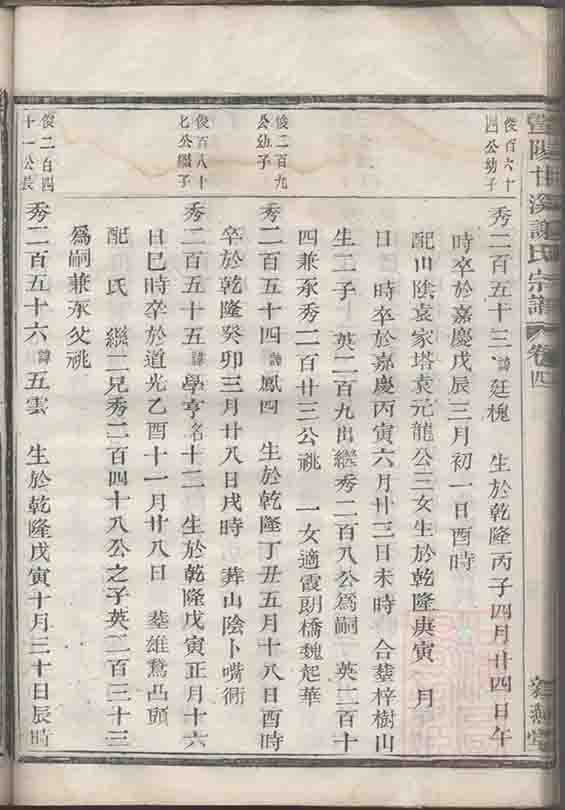 暨陽甘溪謝氏宗譜 卷四
俊百六十
四公幼子
秀二百五十三諱廷槐 生於乾隆丙子四月廿四日午
時卒於嘉慶戊辰三月初一日酉時
配山陰袁家塔袁元龍公三女生於乾隆庚寅 月
日 時卒於嘉慶丙寅六月廿三日未時 合塟梓樹山
生二子 英二百九出繼秀二百八公爲嗣 英二百十
四兼承秀二百廿三公祧 一女適霞朗橋魏起華
俊二百九
公幼子
秀二百五十四諱鳳四 生於乾隆丁丑五月十八日酉時
卒於乾隆癸卯三月廿八日戌時 葬山陰卜嘴衕
俊百八十
七公繼子
秀二百五十五諱學亨名十二 生於乾隆戊寅正月十六
日巳時卒於道光乙酉十一月廿八日 塟雄鵞凸頭
配 氏 繼二兄秀二百四十八公之子英二百三十三
爲嗣兼承父祧
俊二百四
十一公長
秀二百五十六諱五雲 生於乾隆戊寅十月三十日辰時